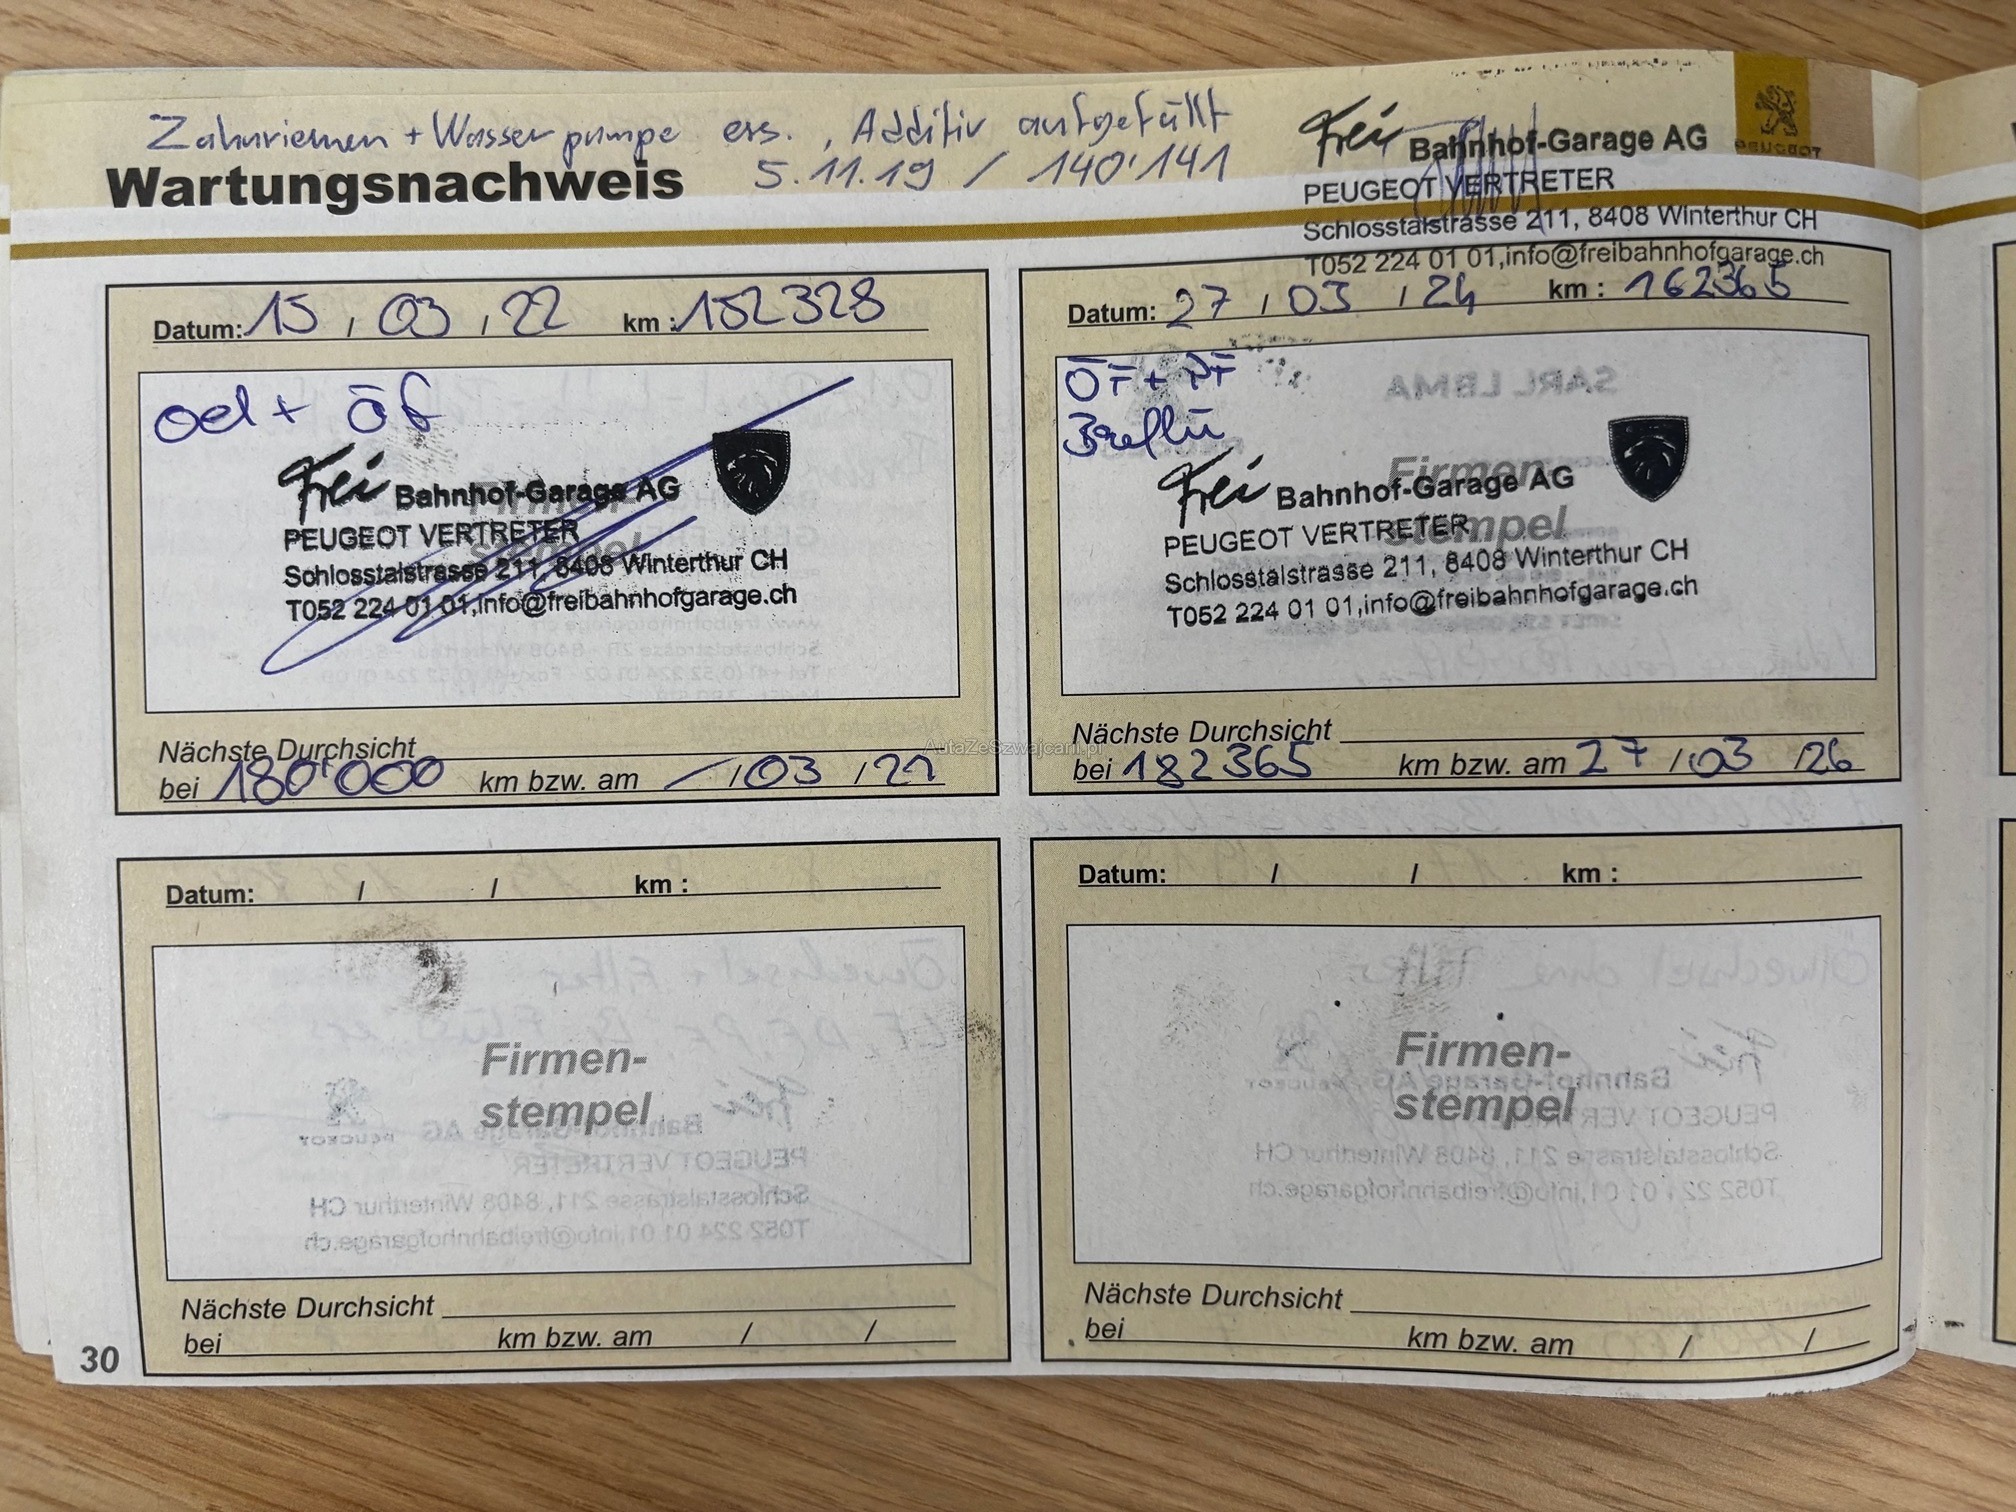 Zahnriemen + Wasserpumpe ers., Additiv aufgefüllt
5.11.19 / 140'141
Wartungsnachweis
Frei Bahnhof-Garage AG
PEUGEOT VERTRETER
Schlosstalstrasse 211, 8408 Winterthur CH
T052 224 01 01,info@freibahnhofgarage.ch
PEUGEOT
Datum: 15 / 03 / 22 km : 152328
oel + öf
Frei Bahnhof-Garage AG
PEUGEOT VERTRETER
Schlosstalstrasse 211, 8408 Winterthur CH
T052 224 01 01,info@freibahnhofgarage.ch
Firmen-
stempel
Nächste Durchsicht
bei 180'000 km bzw. am — / 03 /
Datum: 27 / 03 / 24 km : 162365
ÖF + PF
Frei Bahnhof-Garage AG
PEUGEOT VERTRETER
Schlosstalstrasse 211, 8408 Winterthur CH
T052 224 01 01,info@freibahnhofgarage.ch
Firmen-
stempel
Nächste Durchsicht
bei 182365 km bzw. am 27 / 03 / 26
AutaZeSzwajcarii.pl
Datum: / / km :
Firmen-
stempel
Nächste Durchsicht
bei km bzw. am / /
Datum: / / km :
Firmen-
stempel
Nächste Durchsicht
bei km bzw. am / /
30